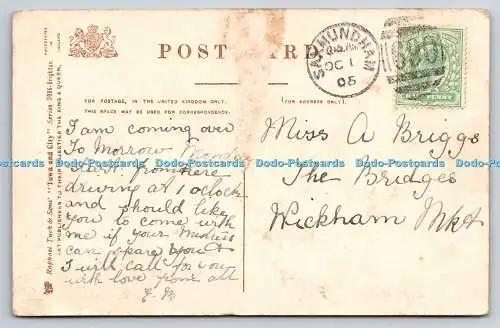 POST CARD
SAXMUNDHAM
OC 1
05
FOR POSTAGE, IN THE UNITED KINGDOM ONLY,
THIS SPACE MAY BE USED FOR CORRESPONDENCE.
(FOR ADDRESS ONLY.)
Raphael Tuck & Sons' "Town and City" Series 2086. Brighton.
ART PUBLISHERS TO THEIR MAJESTIES THE KING & QUEEN.
I am coming over
To Morrow
Start from here
driving at 1 oclock
and should like
you to come with
me if your Mistress
can spare you
I will call for you
with love from all
Miss A Briggs
The Bridges
Wickham Mkt
Dodo Postcards Dodo Postcards Dodo Postcards Dodo Postcards Dodo Postcards